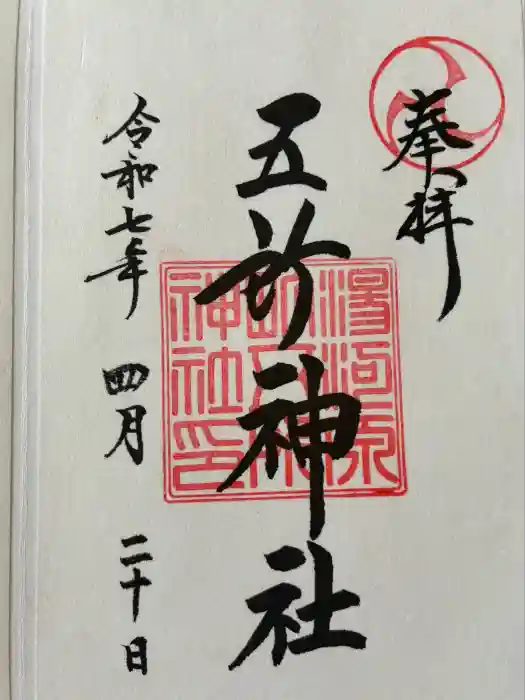 奉拝
五所神社
湯河原
五所
神社印
令和七年 四月 二十日